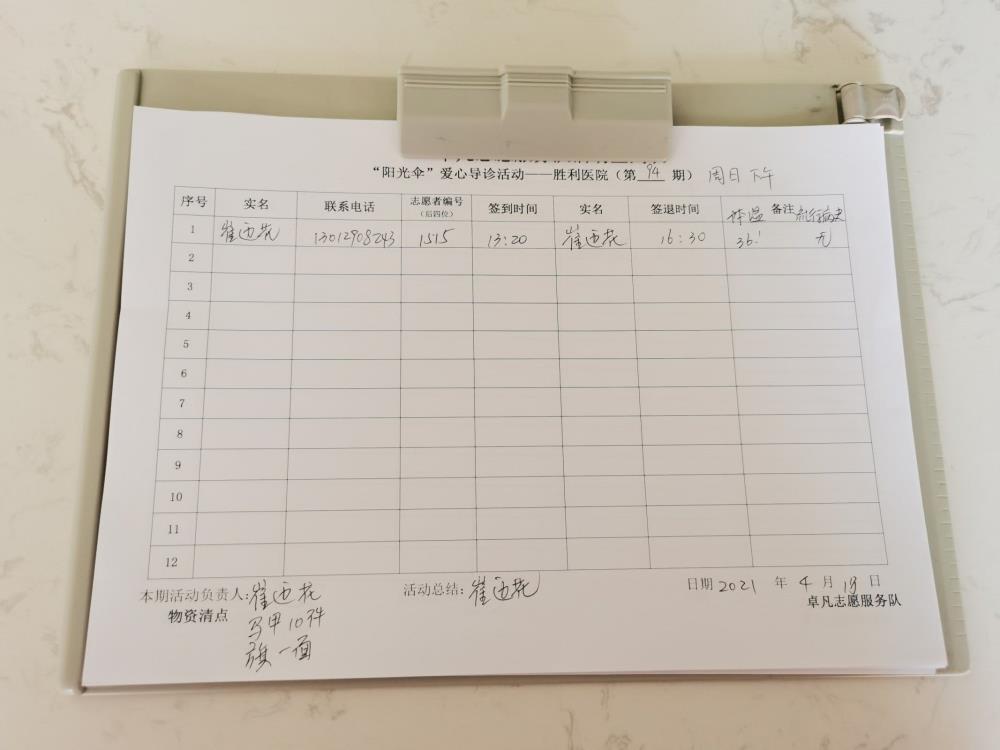 “阳光伞”爱心导诊活动——胜利医院（第 94 期） 周日下午
序号 实名 联系电话 志愿者编号（后四位） 签到时间 实名 签退时间 体温 备注 流行病史
1 崔迺花 13012908243 1515 13:20 崔迺花 16:30 36.1 无
2
3
4
5
6
7
8
9
10
11
12
本期活动负责人:崔迺花 活动总结:崔迺花 日期 2021 年 4 月 18 日
物资清点 卓凡志愿服务队
马甲10件
旗一面